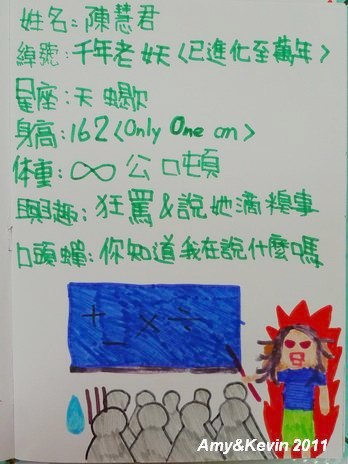 姓名:陳慧君
綽號:千年老妖<已進化至萬年>
星座:天蠍
身高:162<Only One cm>
体重:∞公噸
興趣:狂罵&說她滴糗事
口頭蟬:你知道我在說什麼嗎
+ - × ÷
Amy&Kevin 2011